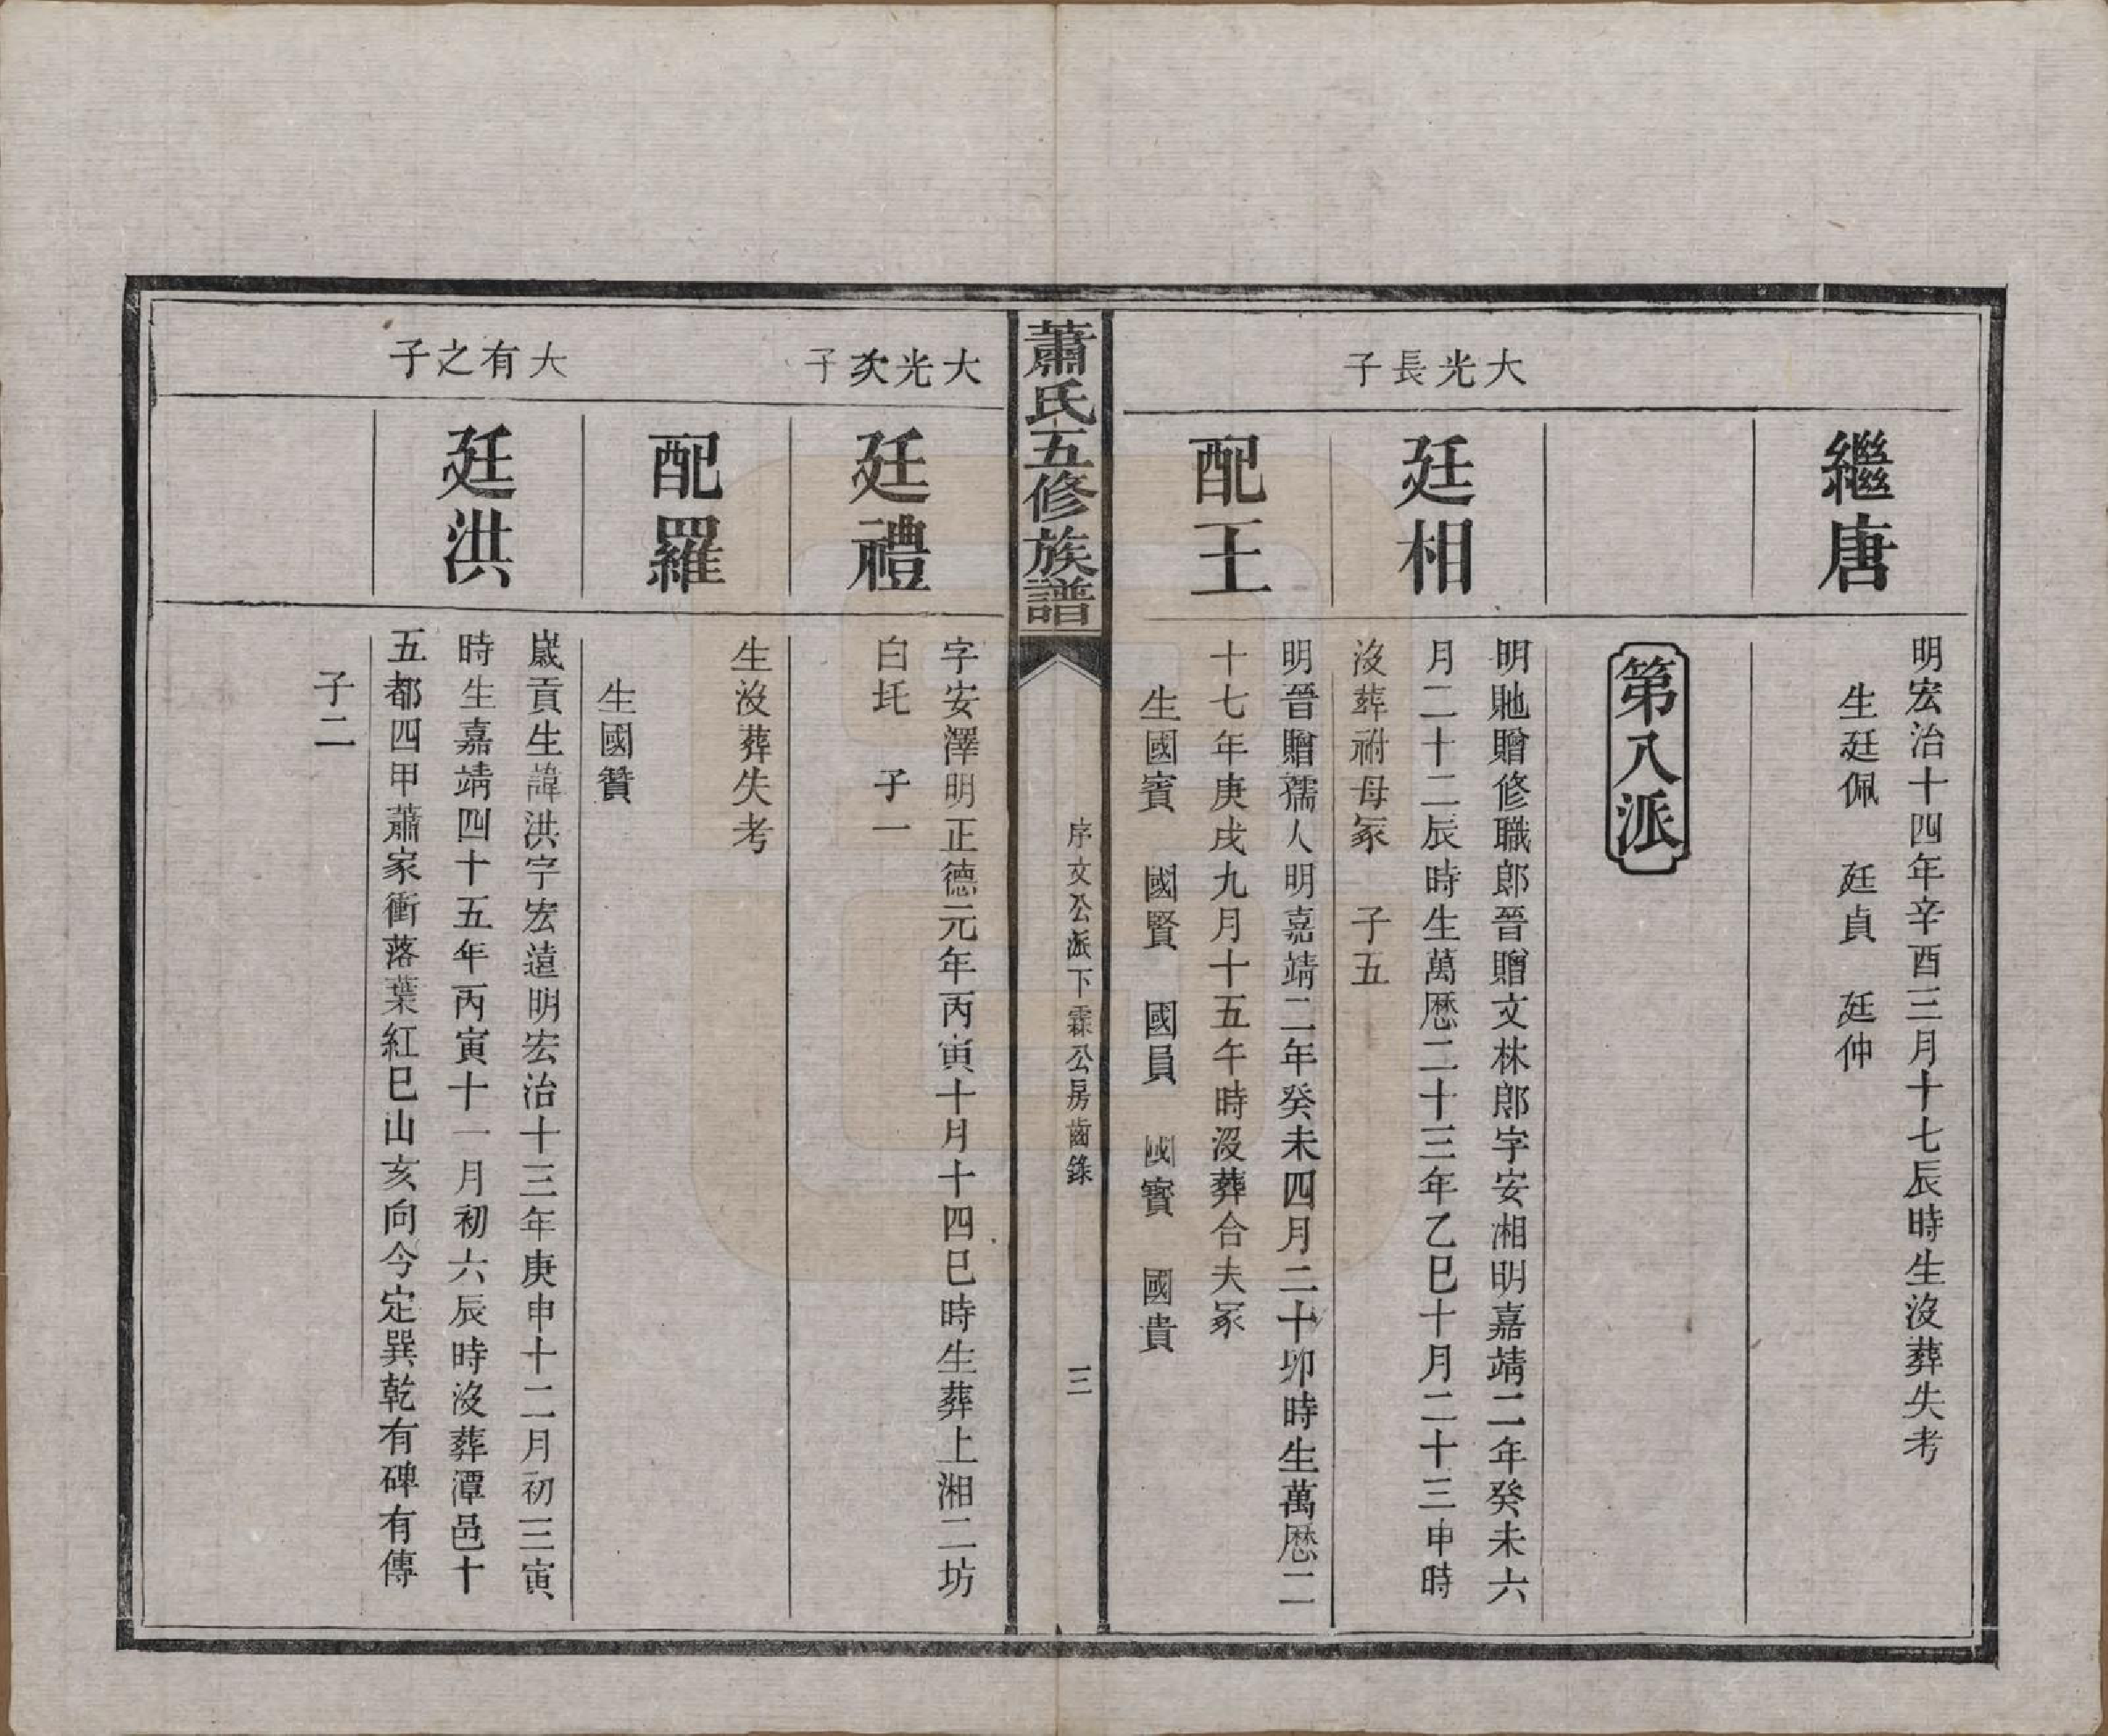 繼唐
明宏治十四年辛酉三月十七辰時生沒葬失考
生廷佩　廷貞　廷仲
第八派
大光長子
廷相
明貤贈修職郎晉贈文林郎字安湘明嘉靖二年癸未六
月二十二辰時生萬厯二十三年乙巳十月二十三申時
沒葬祔母冢　子五
配王
明晉贈孺人明嘉靖二年癸未四月二十卯時生萬厯二
十七年庚戌九月十五午時沒葬合夫冢
生國賓　國賢　國員　國寶　國貴
蕭氏五修族譜
序文公派下霖公房齒錄
三
大光次子
廷禮
字安澤明正德元年丙寅十月十四巳時生葬上湘二坊
白圫　子一
配羅
生沒葬失考
生國贊
大有之子
廷洪
歲貢生諱洪字宏遠明宏治十三年庚申十二月初三寅
時生嘉靖四十五年丙寅十一月初六辰時沒葬潭邑十
五都四甲蕭家衝落葉紅巳山亥向今定巽乾有碑有傳
子二